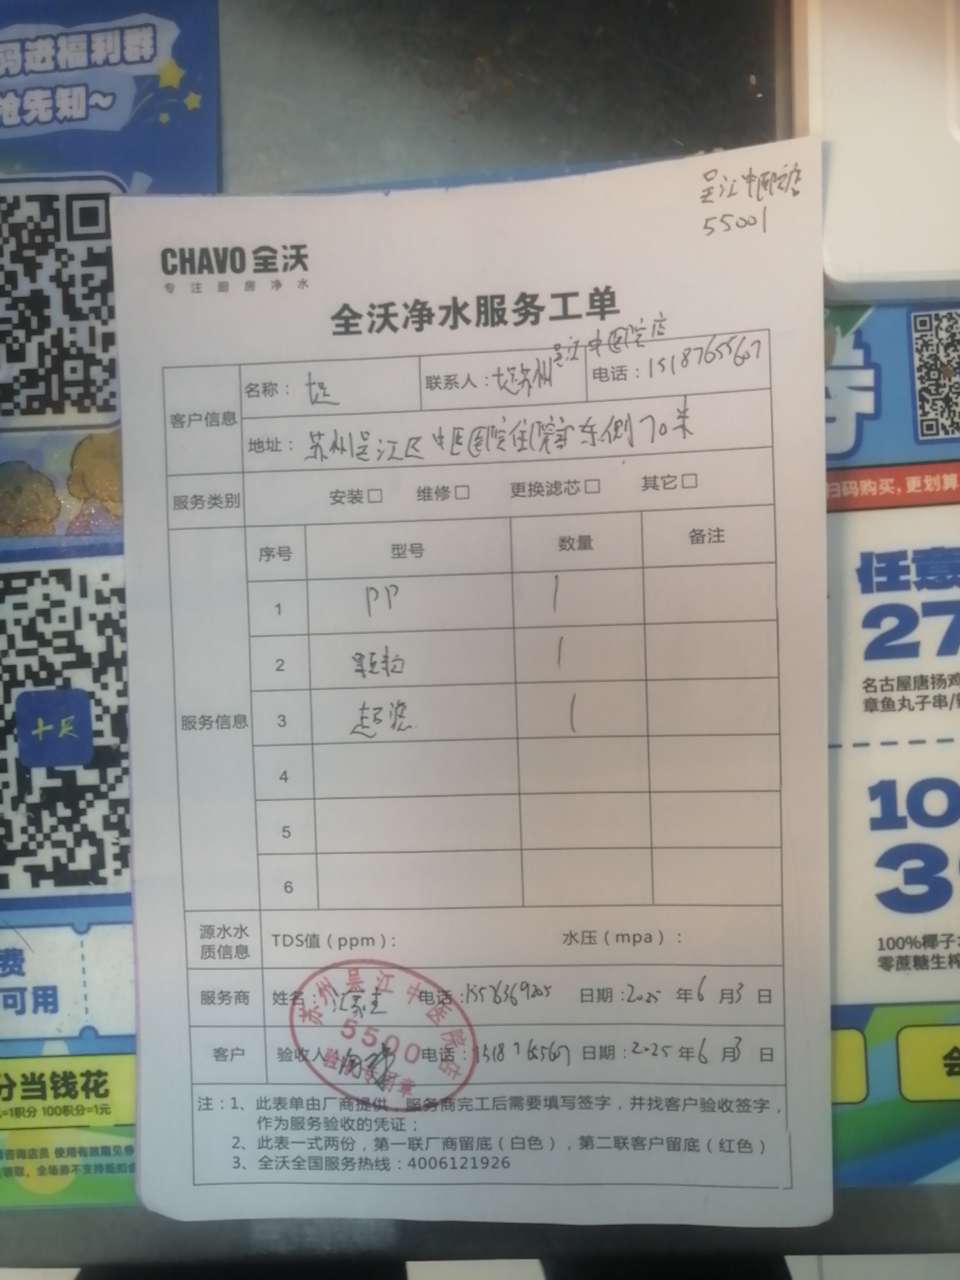 码进福利群
抢先知~
吴江中医院店
55001
CHAVO 全沃
专注厨房净水
全沃净水服务工单
客户信息
名称：十足
联系人：十足苏州吴江中医院店
电话：15187655667
地址：苏州吴江区中医医院住院部东侧70米
服务类别
安装□ 维修□ 更换滤芯□ 其它□
服务信息
序号 型号 数量 备注
1 PP 1
2 颗粒 1
3 超滤 1
4
5
6
源水水质信息
TDS值（ppm）： 水压（mpa）：
服务商 姓名： 电话： 日期：2025年6月3日
客户 验收人 电话： 日期：2025年6月3日
苏州吴江中医院店
5500
验收专用章
注：1、此表单由厂商提供，服务商完工后需要填写签字，并找客户验收签字，
作为服务验收的凭证；
2、此表一式两份，第一联厂商留底（白色），第二联客户留底（红色）
3、全沃全国服务热线：4006121926
十足
费
可用
分当钱花
=1积分 100积分=1元
扫码购买，更划算
任意
27
名古屋唐扬鸡
章鱼丸子串/
10
3
100%椰子
零蔗糖生榨